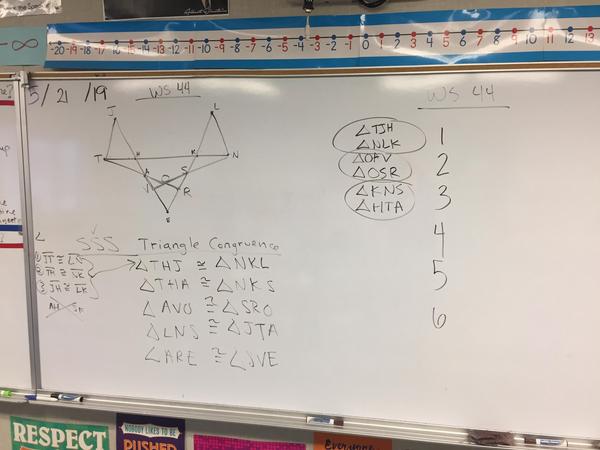 -20 -19 -18 -17 -16 -15 -14 -13 -12 -11 -10 -9 -8 -7 -6 -5 -4 -3 -2 -1 0 1 2 3 4 5 6 7 8 9 10 11 12 13
-∞
5/21/19
WS 44
J
L
T
H
K
N
A
S
V
O
R
E
SSS Triangle Congruence
① JT ≅
② TH ≅
③ JH ≅ LK
△THJ ≅ △NKL
△THA ≅ △NKS
∠AVO ≅ △SRO
△LNS ≅ △JTA
∠ARE ≅ ∠SVE
WS 44
△TJH
△NLK
△OAV
△OSR
△KNS
△HTA
1
2
3
4
5
6
RESPECT
NOBODY LIKES TO BE
PUSHED
Everyone